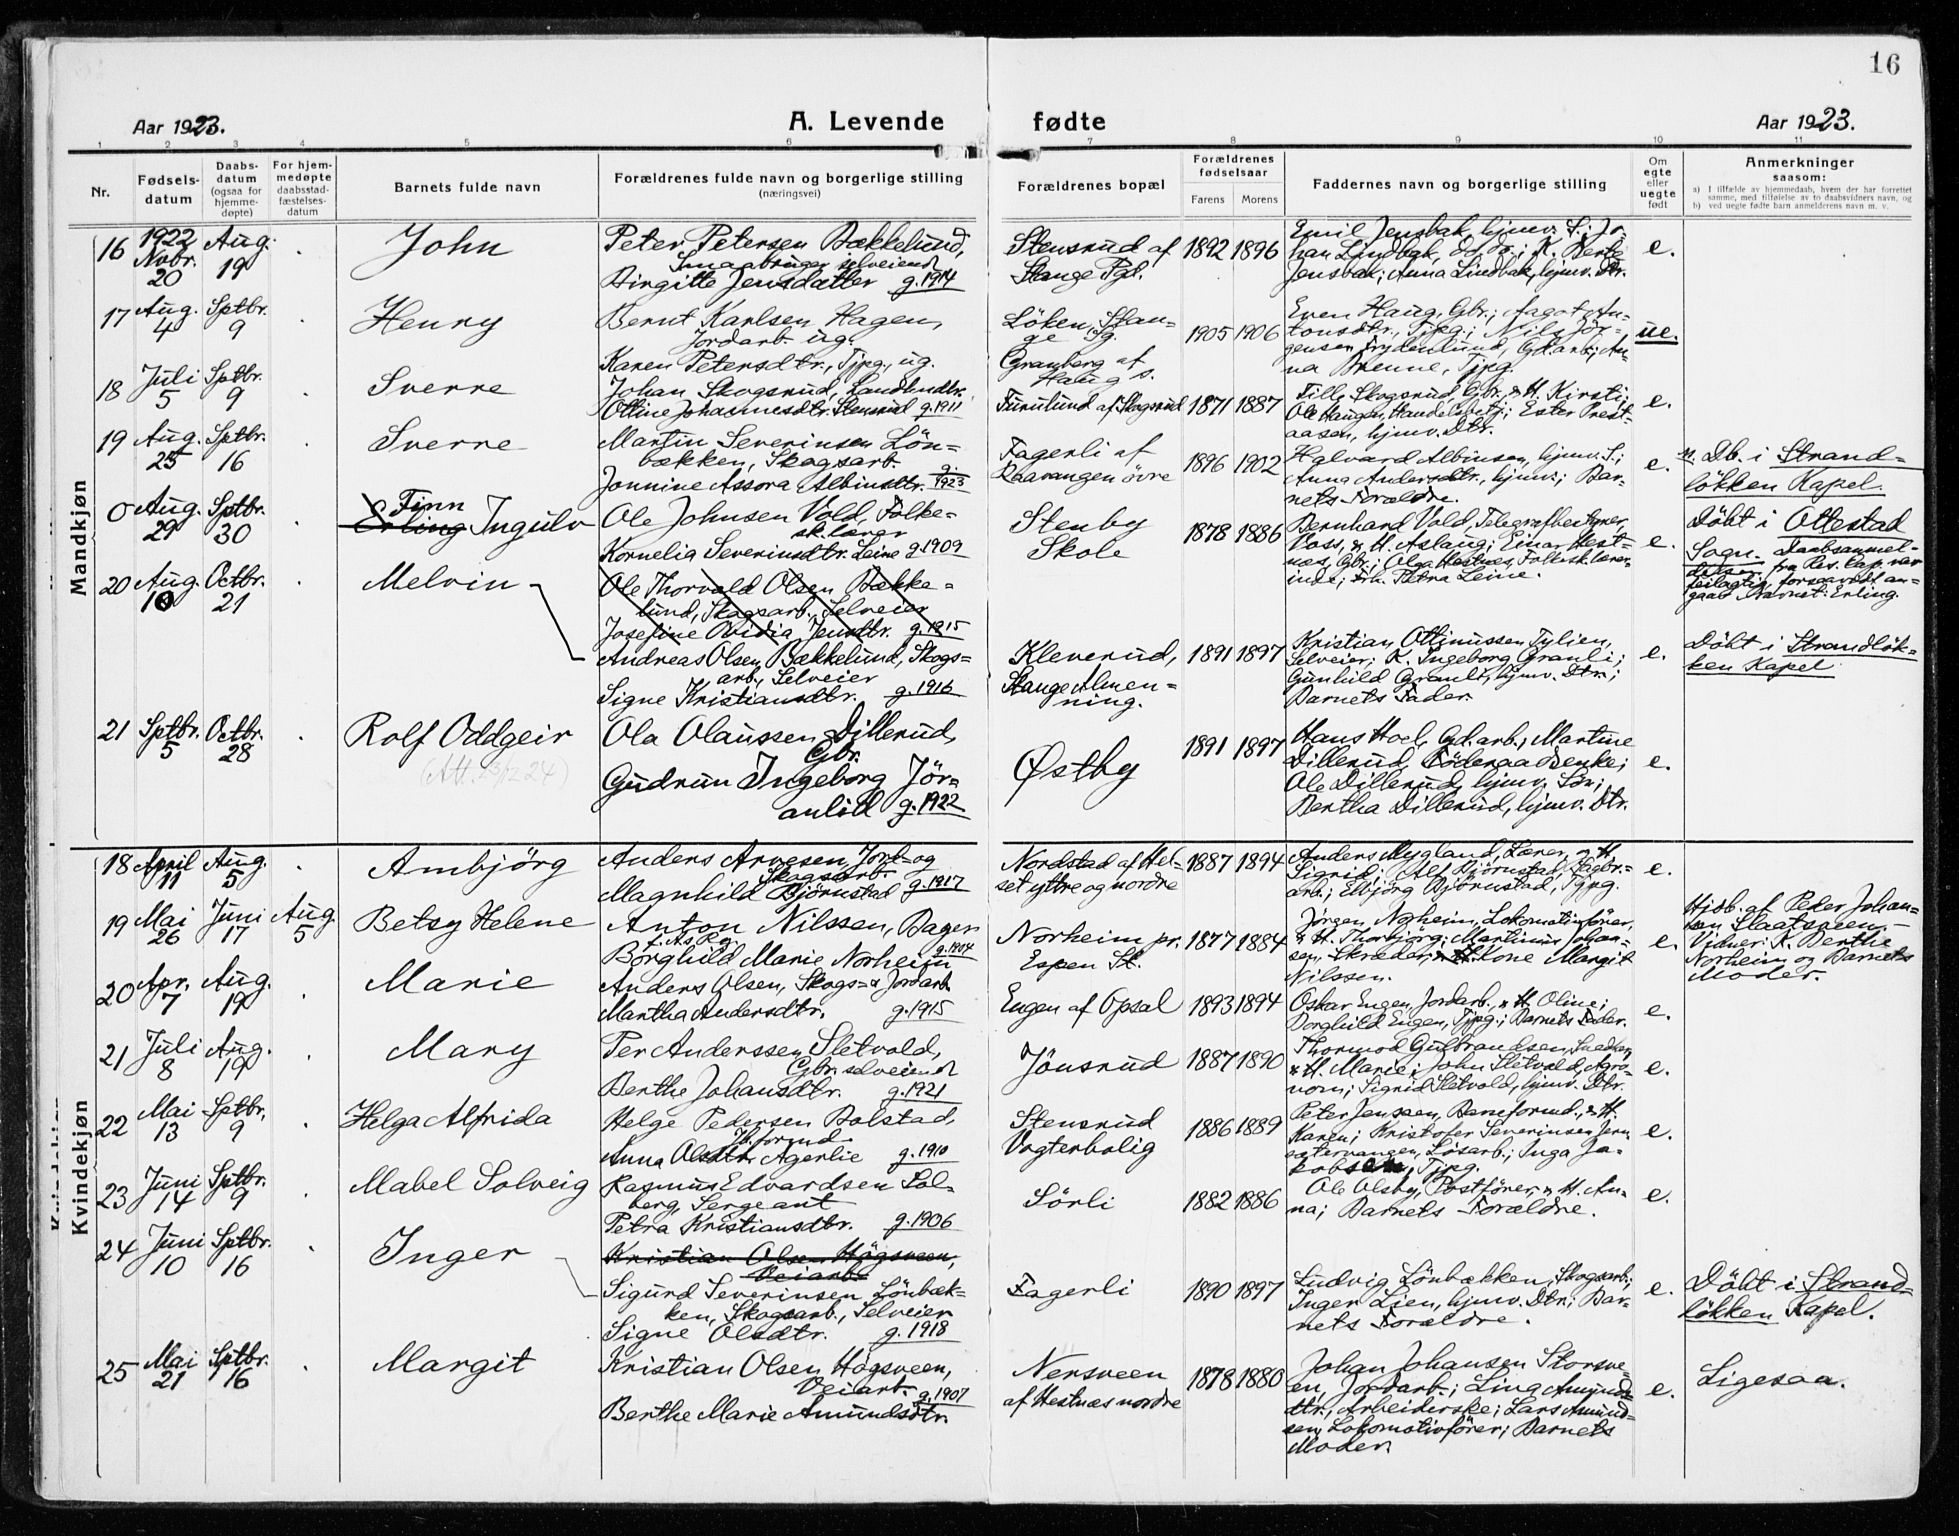 16
Aar 1923. A. Levende fødte Aar 1923.
1 2 3 4 5 6 7 8 9 10 11
Nr.
Fødsels-
datum
Daabs-
datum
(ogsaa for
hjemme-
døpte)
For hjem-
medøpte
daabsstad-
fæstelses-
datum
Barnets fulde navn
Forældrenes fulde navn og borgerlige stilling
(næringsvei)
Forældrenes bopæl
Forældrenes
fødselsaar
Farens Morens
Faddernes navn og borgerlige stilling
Om
egte
eller
uegte
født
Anmerkninger
saasom:
a) I tilfælde av hjemmedaab, hvem der har forrettet
samme, med tilføielse av to daabsvidners navn, og
b) ved uegte fødte barn anmelderens navn m. v.
Mandkjøn
16 1922 Novbr. 20 Aug. 19 John
Peter Petersen Bækkelund,
Smaabruger selveiend
Birgitte Jensdatter g. 1914
Stensrud af
Stange Pgd.
1892 1896
Emil Jensbak, hjmv. S.; Jo-
han Lindbak, do do; K. Berte
Jensbak; Anna Lindbak, hjmv. Dtr.
e.
17 Aug. 4 Sptbr. 9 Henry
Bernt Karlsen Hagen,
Jordarb. ug.
Karen Petersdtr., Tjpg., ug.
Löken, Stan-
ge Sg.
Granberg af
Haug s.
1905 1906
Even Haug, Gbr.; Aagot An-
tonsdtr., Tjpg.; Nils Jör-
gensen Frydenlund, Gd.arb.; An-
na Brenne, Tjpg.
ue.
18 Juli 5 Sptbr. 9 Sverre
Johan Skogsrud, Landhndlr.
Ottine Johannesdtr. Stensrud g. 1911
Furulund af Skogsrud
1871 1887
Tille Skogsrud, Gbr., & H. Kirsti;
Ole Haugen, Handelsbetj.; Ester Prest-
aasen, hjmv. Dtr.
e.
19 Aug. 25 Sptbr. 16 Sverre
Martin Severinsen Lön-
bækken, Skogsarb.
Jonnine Assora Albinsdtr. g. 1923
Fagerli af
Raavangen övre
1896 1902
Halvard Albinsen, hjmv. S.;
Anna Andersdtr., hjmv.; Bar-
nets Forældre.
e.
Db. i Strand-
lökken Kapel.
0 Aug. 29 Sptbr. 30
Finn
Erling Ingulv
Ole Johnsen Vold, Folke-
sk.lærer
Kornelia Severinsdtr. Leine g. 1909
Stenby
Skole
1878 1886
Bernhard Vold, Telegrafbestyrer,
Voss, & H. Aslaug; Einar Hest-
næs, Gbr.; Olga Hestnæs, Folksk.lærer-
inde; Petra Leine.
e.
Döbt i Ottestad
Sogn. Daabsanmel-
delsen fra Res. Kap. var
feilagtig forsaavidt an-
gaar Navnet: Erling.
20 Aug. 10 Octbr. 21 Melvin
Ole Thorvald Olsen Bække-
lund, Skogsarb., Selveier
Josefine Ovidia Jensdtr. g. 1915
Andreas Olsen Bækkelund, Skogs-
arb., Selveier
Signe Kristiansdtr. g. 1916
Kleverud,
Stange Almen-
ning.
1891 1897
Kristian Ottinussen Tylien,
Selveier; K. Ingeborg Granli;
Gunhild Granli, hjmv. Dtr.;
Barnets Fader.
e.
Döbt i Strandlök-
ken Kapel
21 Sptbr. 5 Octbr. 28 Rolf Oddgeir
(Att. 23/12 24)
Ola Olaussen Dillerud,
Gbr.
Gudrun Ingeborg Jör-
anlid g. 1922
Østby
1891 1897
Hans Hoel, Gd.arb.; Martine
Dillerud, Föderaadsenke;
Ole Dillerud, hjmv. Sön;
Bertha Dillerud, hjmv. Dtr.
e.
Kvindekjøn
18 April 11 Aug. 5 Ambjörg
Anders Arnesen, Jord- og
Skogsarb.
Magnhild Björnstad g. 1917
Nordstad af Hel-
set yttre og nordre
1887 1894
Anders Mygland, Lærer, & H.
Sigrid; Alf Björnstad, Fagbr.-
arb.; Elbjörg Björnstad, Tjpg.
e.
19 Mai 26 Juni 17 Aug. 5 Betsy Helene
Anton Nilssen, Bager
Borghild Marie Norheim g. 1904
Norheim pr.
Espen St.
1877 1884
Jörgen Norheim, Lokomotivförer,
& H. Thorbjörg; Martinus Johan-
sen, Skræder, Kone Margit
Nilssen.
e.
Hjdb. af Peder Johan-
sen Slaatsveen. -
Vidner: K. Berthe
Norheim og Barnets
Moder.
20 Apr. 7 Aug. 19 Marie
Anders Olsen, Skogs- & Jordarb.
Martha Andersdtr. g. 1915
Engen af Opsal
1893 1894
Oskar Engen, Jordarb., & H. Oline;
Borghild Engen, Tjpg.; Barnets Fader.
e.
21 Juli 8 Aug. 19 Mary
Per Anderssen Sletvold,
Gbr. selveiend
Berthe Johansdtr. g. 1921
Jönsrud
1887 1890
Thormod Gulbrandsen, Snedker,
& H. Marie; John Sletvold, Agro-
nom; Sigrid Sletvold, hjmv. Dtr.
e.
22 Mai 13 Sptbr. 9 Helga Alfrida
Helge Pedersen Bolstad,
Anna Olsdtr. Agerlie g. 1910
Stensrud
Vogterbolig
1886 1889
Peter Jenssen, Baneformd., & H.
Karen; Kristofer Severinsen Jern-
sætervangen, Lösarb.; Inga Ja-
kobsen, Tjpg.
e.
23 Juni 14 Sptbr. 9 Mabel Solveig
Rasmus Edvardsen Sol-
berg, Sergeant
Petra Kristiansdtr. g. 1906
Sörli
1882 1886
Ole Olsby, Postförer, & H. An-
na; Barnets Forældre.
e.
24 Juni 10 Sptbr. 16 Inger
Kristian Olsen Högsveen,
Veiarb.
Sigurd Severinsen Lönbæk-
ken, Skogsarb., Selveier
Signe Olsdtr. g. 1918
Fagerli
1890 1897
Ludvig Lönbækken, Skogsarb.;
Inger Lien, hjmv. Dtr.; Bar-
nets Forældre.
e.
Döbt i Strand-
lökken Kapel.
25 Mai 21 Sptbr. 16 Margit
Kristian Olsen Högsveen,
Veiarb. g. 1907
Berthe Marie Amundsdtr.
Nersveen
af Hestnæs nordre
1878 1880
Johan Johansen Storsve-
en, Jordarb.; Lina Amunds-
dtr., Arbeiderske; Lars Amund-
sen, Lokomotivförer; Barnets
Moder.
e.
Ligesaa.